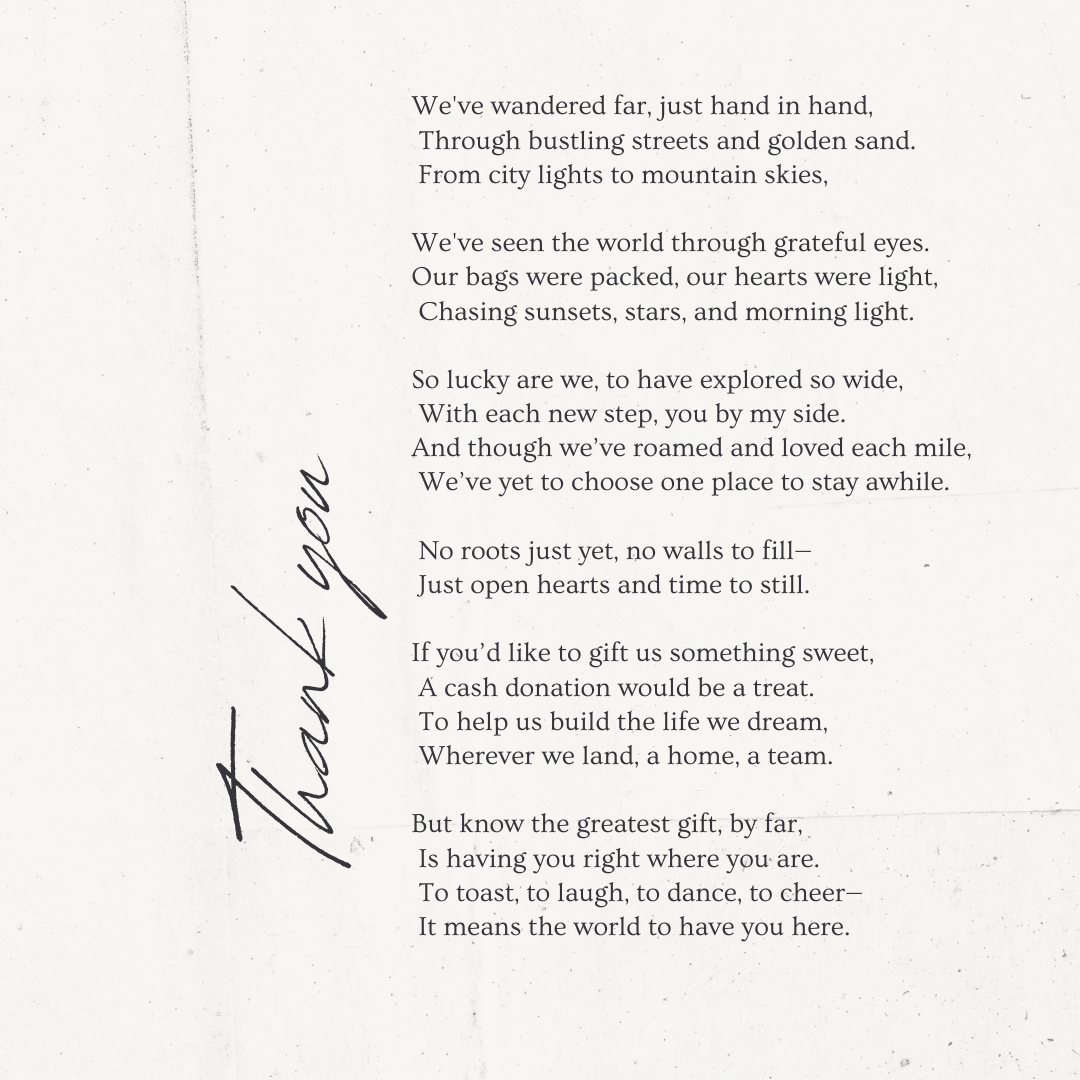 We've wandered far, just hand in hand,
Through bustling streets and golden sand.
From city lights to mountain skies,
We've seen the world through grateful eyes.
Our bags were packed, our hearts were light,
Chasing sunsets, stars, and morning light.
So lucky are we, to have explored so wide,
With each new step, you by my side.
And though we’ve roamed and loved each mile,
We’ve yet to choose one place to stay awhile.
No roots just yet, no walls to fill—
Just open hearts and time to still.
If you’d like to gift us something sweet,
A cash donation would be a treat.
To help us build the life we dream,
Wherever we land, a home, a team.
But know the greatest gift, by far,
Is having you right where you are.
To toast, to laugh, to dance, to cheer—
It means the world to have you here.
Thank you